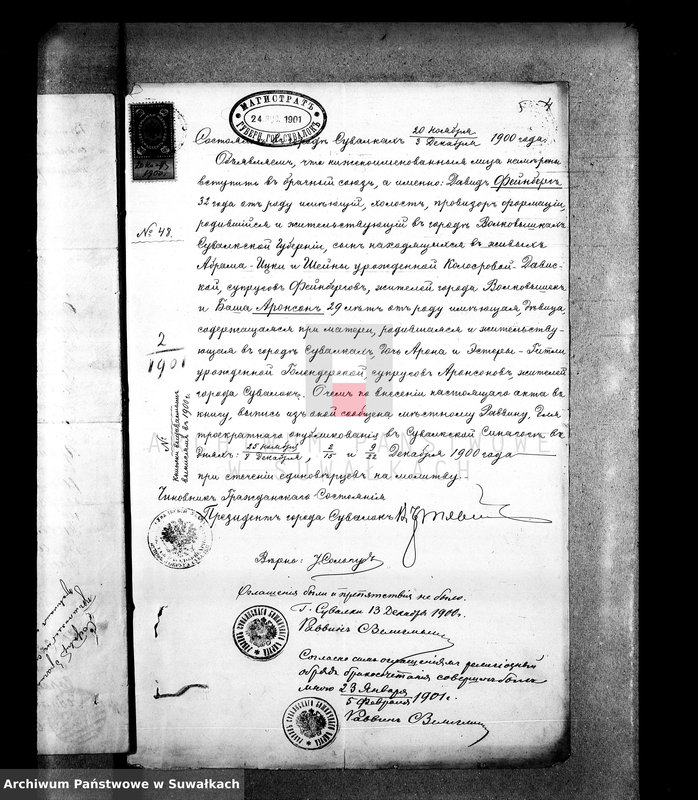 4
МАГИСТРАТЪ
24 1901
ГУБЕРН. ГОР. СУВАЛОКЪ
Состоялось въ городѣ Сувалкахъ 20 Ноября / 3 Декабря 1900 года.
Объявляемъ, что нижепоименованныя лица намѣрены
вступить въ брачный союзъ, а именно: Давидъ Фейнбергъ,
32 года отъ роду имѣющій, холостъ, провизоръ фармаціи,
родившійся и жительствующій въ городѣ Волковышкахъ
Сувалкской Губерніи, сынъ находящихся въ живыхъ
Абрама-Ицки и Шейны урожденной
кой, супруговъ Фейнберговъ, жителей города Волковышекъ
и Баша Аронсонъ 29 лѣтъ отъ роду имѣющая, дѣвица,
содержащаяся при матери, родившаяся и жительству-
ющая въ городѣ Сувалкахъ, дочь Арона и Эстеры-Гитли
урожденной Голендерской супруговъ Аронсоновъ, жителей
города Сувалокъ. О чемъ по внесеніи настоящаго акта въ
книгу, выпись изъ оной сообщена мѣстному Раввину, для
троекратнаго опубликованія въ Сувалкской Синагогѣ въ
дняхъ: 25 Ноября / 8 Декабря, 2 / 15 и 9 / 22 Декабря 1900 года
при стеченіи единовѣрцевъ на молитву.
Чиновникъ Гражданскаго Состоянія
Президентъ города Сувалокъ
Вѣрно:
№ 48.
2
1901
№
Книжки выдаваемыхъ
выписямъ въ 1900 г.
Оглашенія были и препятствія не было.
Г. Сувалки 13 Декабря 1900 г.
Раввинъ
Согласно симъ оглашеніямъ религіозный
обрядъ бракосочетанія совершенъ былъ
мною 23 Января / 5 Февраля 1901 г.
Раввинъ
ARCHIWUM PAŃSTWOWE
W SUWAŁKACH
Archiwum Państwowe w Suwałkach